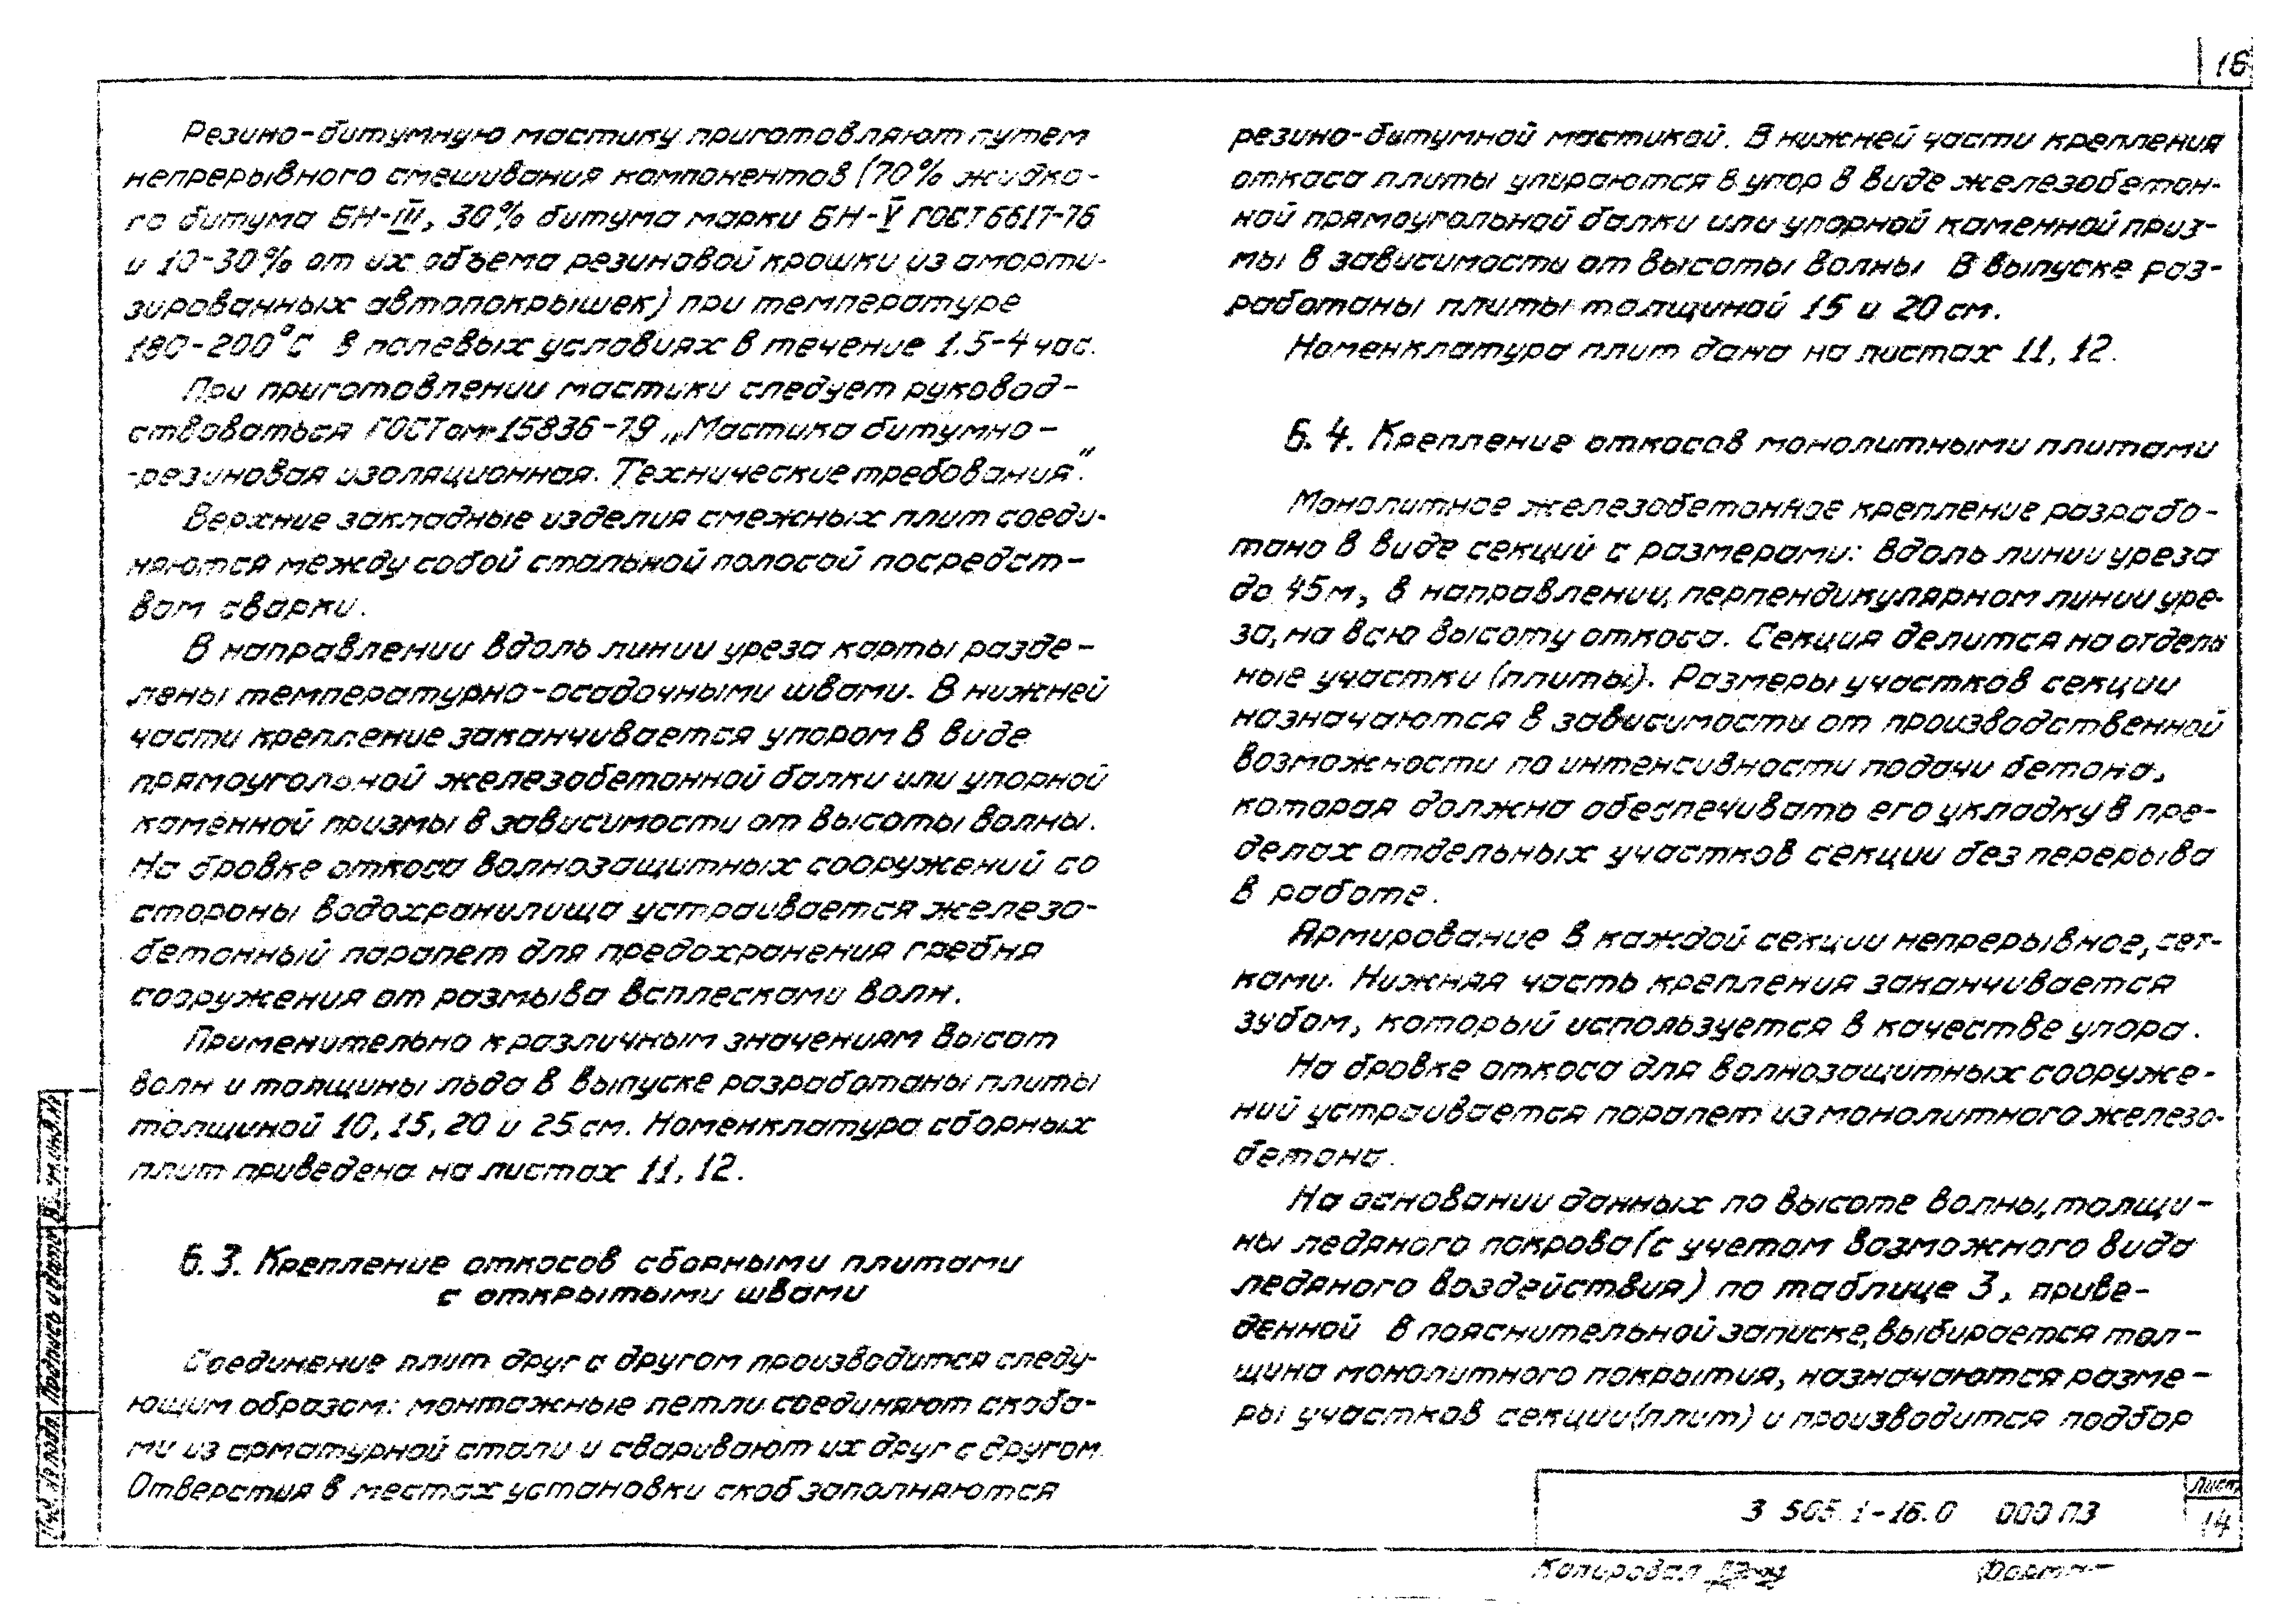 16
Резино-битумную мастику приготовляют путем
непрерывного смешивания компонентов (70% жидко-
го битума БН-III, 30% битума марки БН-V ГОСТ 6617-76
и 10-30% от их объема резиновой крошки из аморти-
зированных автопокрышек) при температуре
180-200°С в полевых условиях в течение 1.5-4 час.
При приготовлении мастики следует руковод-
ствоваться ГОСТом 15836-79 „Мастика битумно-
-резиновая изоляционная. Технические требования".
Верхние закладные изделия смежных плит соеди-
няются между собой стальной полосой посредст-
вом сварки.
В направлении вдоль линии уреза карты разде-
лены температурно-осадочными швами. В нижней
части крепление заканчивается упором в виде
прямоугольной железобетонной балки или упорной
каменной призмы в зависимости от высоты волны.
На бровке откоса волнозащитных сооружений со
стороны водохранилища устраивается железо-
бетонный парапет для предохранения гребня
сооружения от размыва всплесками волн.
Применительно к различным значениям высот
волн и толщины льда в выпуске разработаны плиты
толщиной 10, 15, 20 и 25 см. Номенклатура сборных
плит приведена на листах 11, 12.
6.3. Крепление откосов сборными плитами
с открытыми швами
Соединение плит друг с другом производится следу-
ющим образом: монтажные петли соединяют скоба-
ми из арматурной стали и сваривают их друг с другом.
Отверстия в местах установки скоб заполняются
резино-битумной мастикой. В нижней части крепления
откоса плиты упираются в упор в виде железобетон-
ной прямоугольной балки или упорной каменной приз-
мы в зависимости от высоты волны В выпуске раз-
работаны плиты толщиной 15 и 20 см.
Номенклатура плит дана на листах 11, 12.
6.4. Крепление откосов монолитными плитами
Монолитное железобетонное крепление разрабо-
тано в виде секций с размерами: вдоль линии уреза
до 45м, в направлении, перпендикулярном линии уре-
за, на всю высоту откоса. Секция делится на отдель
ные участки (плиты). Размеры участков секции
назначаются в зависимости от производственной
возможности по интенсивности подачи бетона,
которая должна обеспечивать его укладку в пре-
делах отдельных участков секции без перерыва
в работе.
Армирование в каждой секции непрерывное, сет-
ками. Нижняя часть крепления заканчивается
зубом, который используется в качестве упора.
На бровке откоса для волнозащитных сооруже-
ний устраивается парапет из монолитного железо-
бетона.
На основании данных по высоте волны, толщи-
ны ледяного покрова (с учетом возможного вида
ледяного воздействия) по таблице 3, приве-
денной в пояснительной записке, выбирается тол-
щина монолитного покрытия, назначаются разме-
ры участков секции (плит) и производится подбор
3 505.1-16.0 000 ПЗ
Лист
14
Копировал
Инв. № подл. Подпись и дата